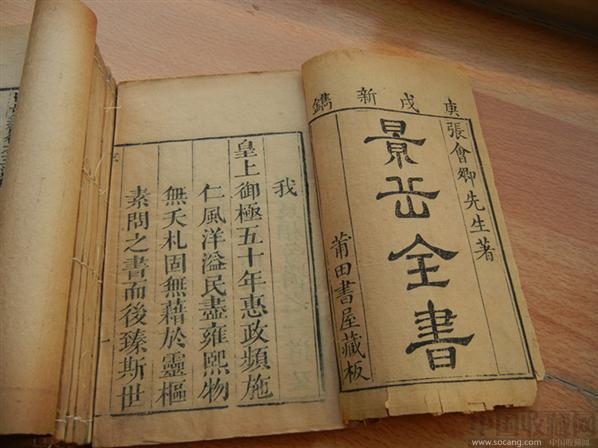 庚戌新鐫
張會卿先生著
景岳全書
莆田書屋藏板
我
皇上御極五十年惠政頻施
仁風洋溢民盡雍熙物
無夭札固無藉於靈樞
素問之書而後臻斯世
中国收藏网
www.socang.com 中国收藏网